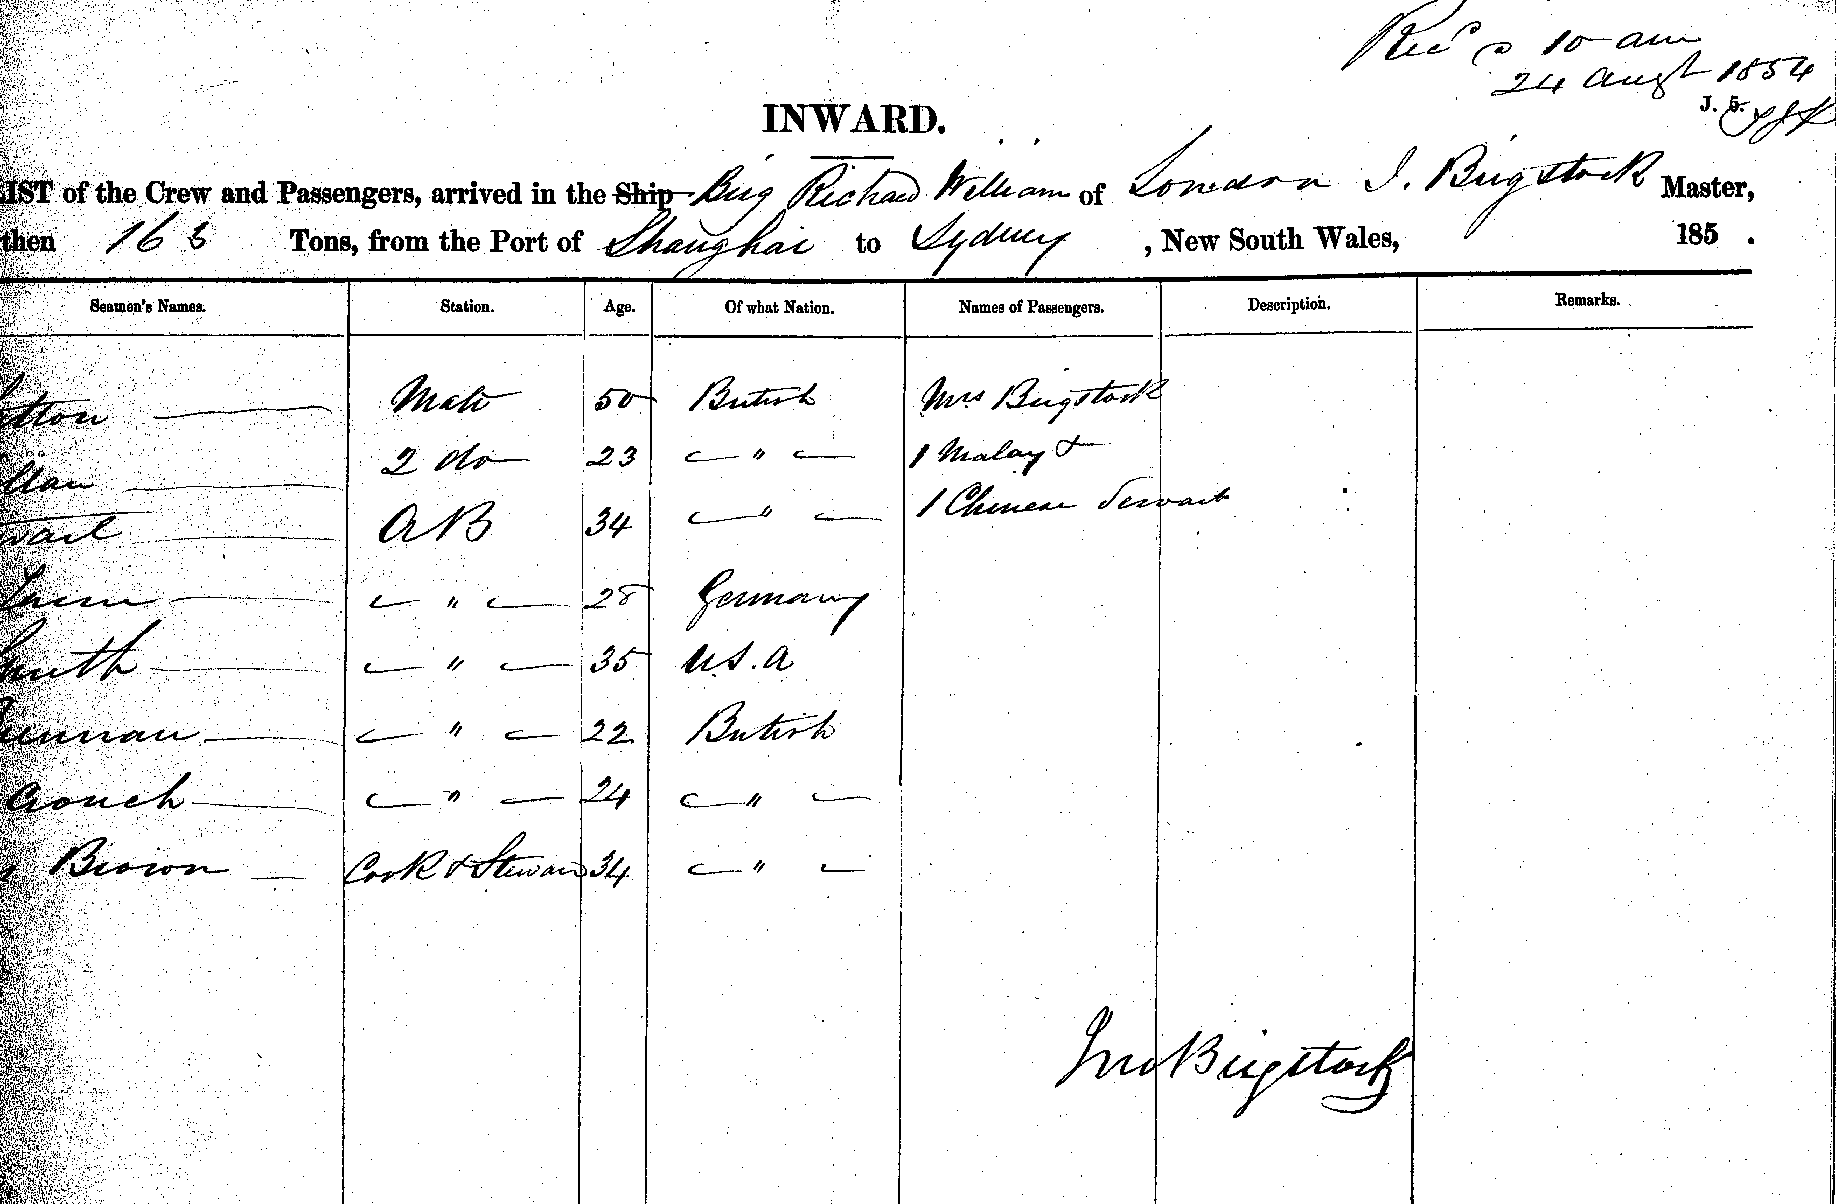 Recd @ 10 am
24 Augt 1854
J. 5.
INWARD.
LIST of the Crew and Passengers, arrived in the Ship Brig Richard William of London J. Brigstock Master,
then 163 Tons, from the Port of Shanghai to Sydney, New South Wales, 185 .
Seamen's Names. Station. Age. Of what Nation. Names of Passengers. Description. Remarks.
tton — Mate 50 British Mrs Brigstock
llan — 2 do 23 — " — 1 Malay &
wart — AB 34 — " — 1 Chinese Servant
— " — 28 Germany
Smith — — " — 35 U.S.A
ennan — — " — 22 British
Gouch — — " — 24 — " —
Brown — Cook & Steward 34 — " —
Jno Brigstock